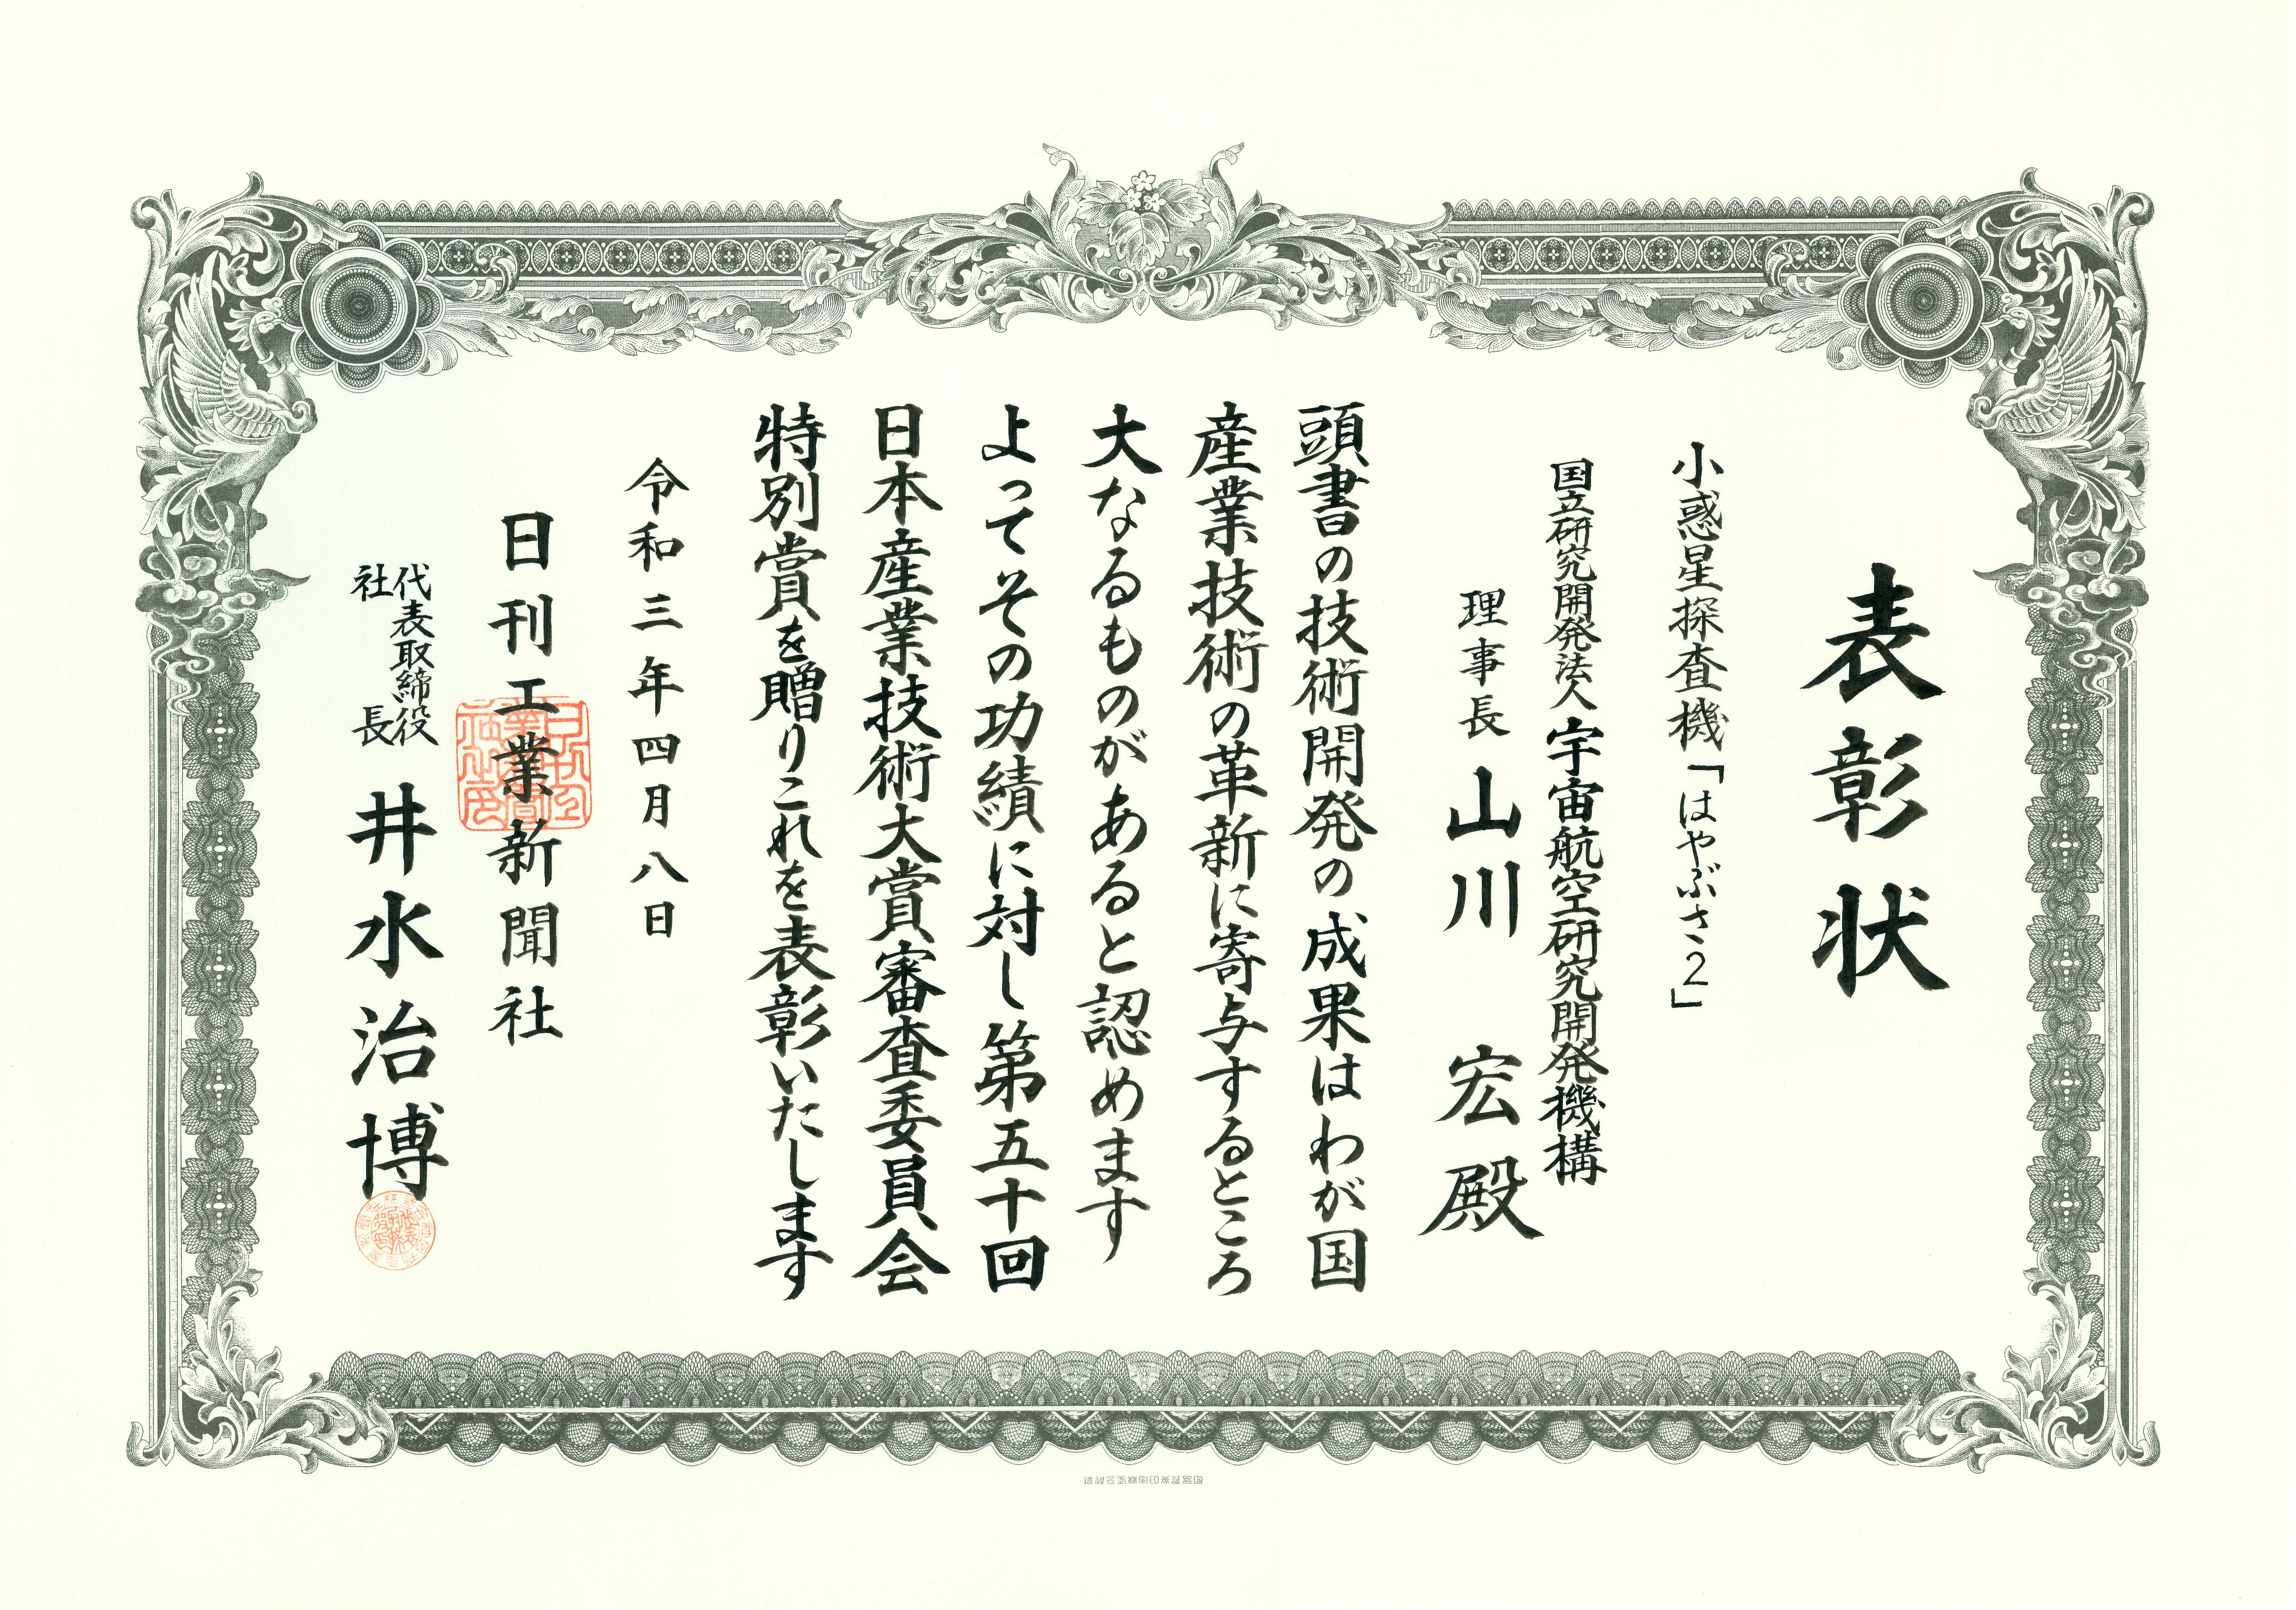 表彰状
小惑星探査機「はやぶさ2」
国立研究開発法人 宇宙航空研究開発機構
理事長 山川 宏 殿
頭書の技術開発の成果はわが国
産業技術の革新に寄与するところ
大なるものがあると認めます
よってその功績に対し第五十回
日本産業技術大賞審査委員会
特別賞を贈りこれを表彰いたします
令和三年四月八日
日刊工業新聞社
代表取締役
社長 井水治博